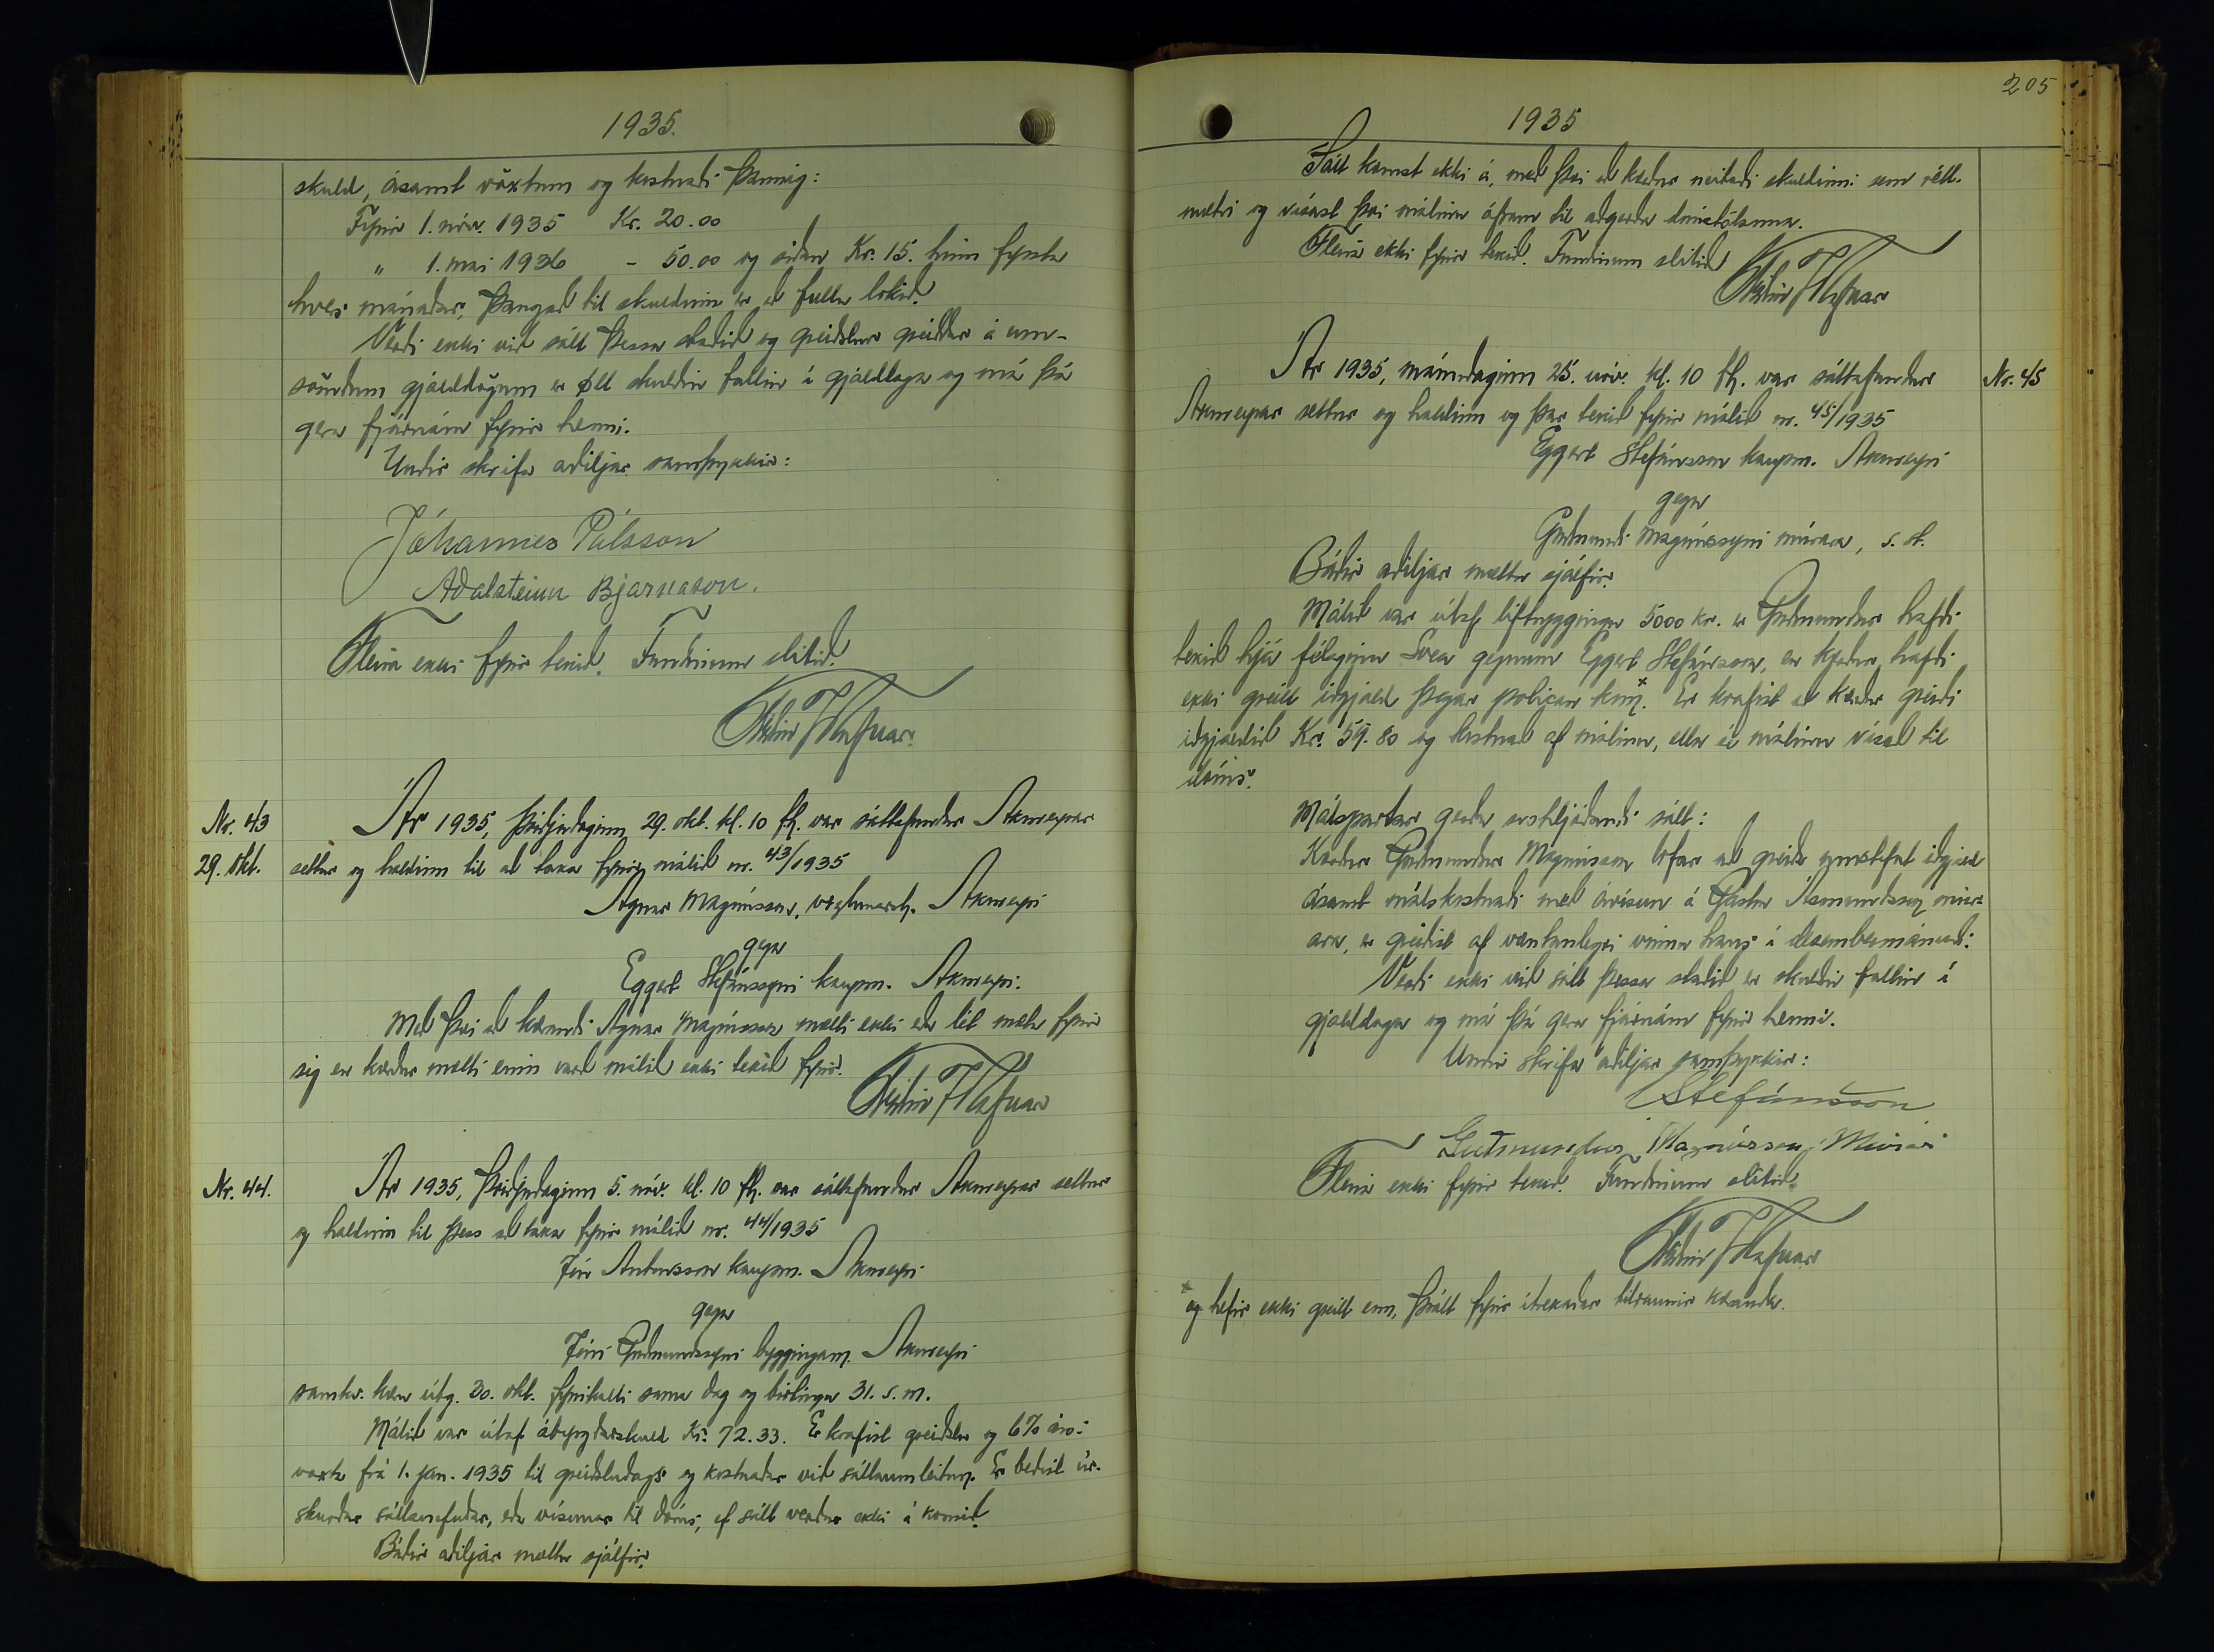 1935.
skuld, ásamt vöxtum og kostnaði þannig:
Fyrir 1. nóv. 1935 Kr. 20.00
" 1. maí 1936 - 50.00 og síðan Kr. 15. hinn fyrsta
hvers mánaðar, þangað til skuldinni er að fullu lokið.
Verði ekki við sátt þessa staðið og greiðslur greiddar á um-
sömdum gjalddögum er öll skuldin fallin í gjalddaga og má þá
gera fjárnám fyrir henni.
Undir skrifa aðiljar samþykkir:
Jóhannes Pálsson
Aðalsteinn Bjarnason.
Fleira ekki fyrir tekið. Fundinum slitið.
Nr. 43
29. okt.
Ár 1935, þriðjudaginn 29. okt. kl. 10 fh. var sáttafundur Akureyrar
settur og haldinn til að taka fyrir málið nr. 43/1935
Agnar Magnússon, Akureyri
gegn
Eggert Stefánssyni kaupm. Akureyri.
Með því að kærandi Agnar Magnússon mætti ekki eða lét mæta fyrir
sig en kærður mætti einn varð málið ekki tekið fyrir.
Nr. 44.
Ár 1935, þriðjudaginn 5. nóv. kl. 10 fh. var sáttafundur Akureyrar settur
og haldinn til þess að taka fyrir málið nr. 44/1935
Jón Antonsson kaupm. Akureyri
gegn
Jóni Guðmundssyni byggingam. Akureyri
samkv. kæru útg. 30. okt. fyrirkalli sama dag og birtingu 31. s. m.
Málið var útaf ábyrgðarskuld Kr. 72.33. Er krafist greiðslu og 6% árs-
vaxta frá 1. jan. 1935 til greiðsludags og kostnaðar við sáttaumleitun. Er beðist úr-
skurðar sáttanefndar, eða vísunar til dóms, ef sátt verður ekki á komið.
Báðir aðiljar mættu sjálfir.
205
1935
Sátt komst ekki á, með því að kærður neitaði skuldinni sem rétt-
mætri og vísast því málinu áfram til aðgerða dómstólanna.
Fleira ekki fyrir tekið. Fundinum slitið
Nr. 45
Ár 1935, mánudaginn 25. nóv. kl. 10 fh. var sáttafundur
Akureyrar settur og haldinn og þar tekið fyrir málið nr. 45/1935
Eggert Stefánsson kaupm. Akureyri
gegn
Guðmundi Magnússyni múrara, s. st.
Báðir aðiljar mættu sjálfir.
Málið var útaf líftryggingu 5000 kr. er Guðmundur hafði
tekið hjá félaginu Svea gegnum Eggert Stefánsson, en kærður hafði
ekki greitt iðgjald þegar poliçan kom.x Er krafist að kærður greiði
iðgjaldið Kr. 59.80 og kostnað af málinu, ella sé málinu vísað til
dóms.
Málspartar gerðu svohljóðandi sátt:
Kærður Guðmundur Magnússon lofar að greiða umstefnt iðgjald
ásamt málskostnaði með ávísun á Ásmundsson múr-
ara, er greiðist af væntanlegri vinnu hans í desembermánuði.
Verði ekki við sátt þessa staðið er skuldin fallin í
gjalddaga og má þá gera fjárnám fyrir henni.
Undir skrifa aðiljar samþykkir:
EStefánsson
Guðmundur Magnússon, Múrari
Fleira ekki fyrir tekið. Fundinum slitið.
x og hefir ekki greitt enn, þrátt fyrir ítrekaðar tilraunir kæranda.